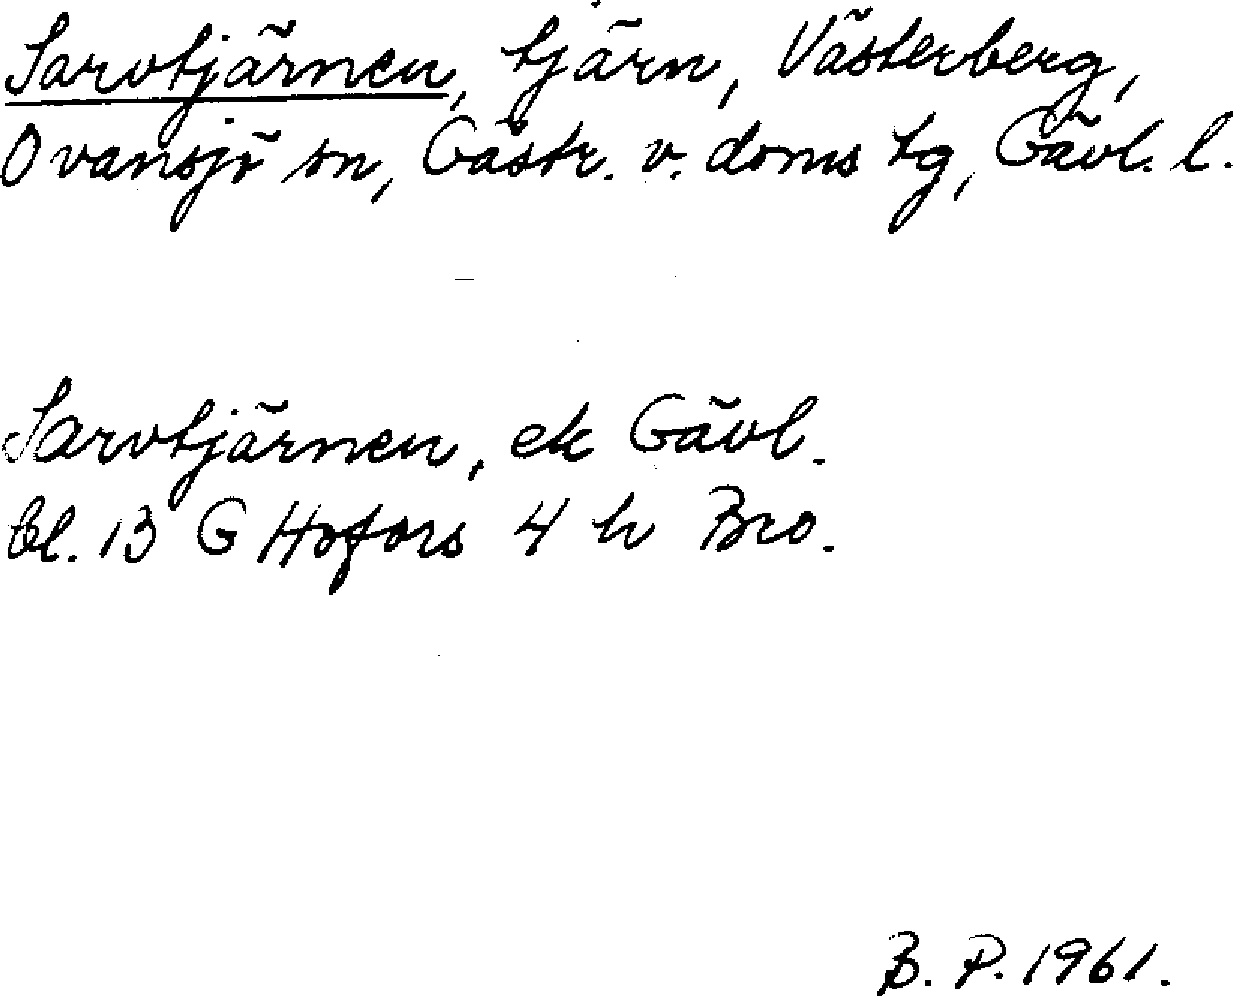 Sarvtjärnen, tjärn, Västerberg,
Ovansjö sn, Gästr. v. doms tg, Gävl. l.
Sarvtjärnen, ek Gävl.
bl. 13 G Hofors 4 h Bro.
B. P. 1961.